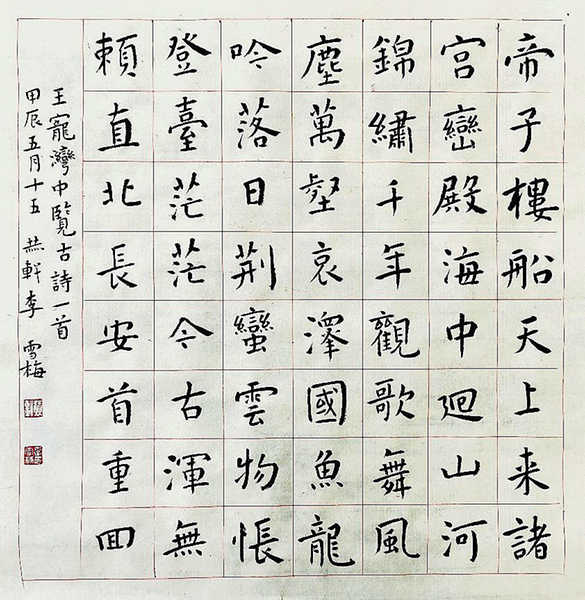 帝子樓船天上来諸
宮巒殿海中廻山河
錦繡千年觀歌舞風
塵萬壑哀澤國魚龍
吟落日荆蠻雲物悵
登臺茫茫今古渾無
頼直北長安首重囬
王寵灣中覽古詩一首
甲辰五月十五 燕軒李雪梅